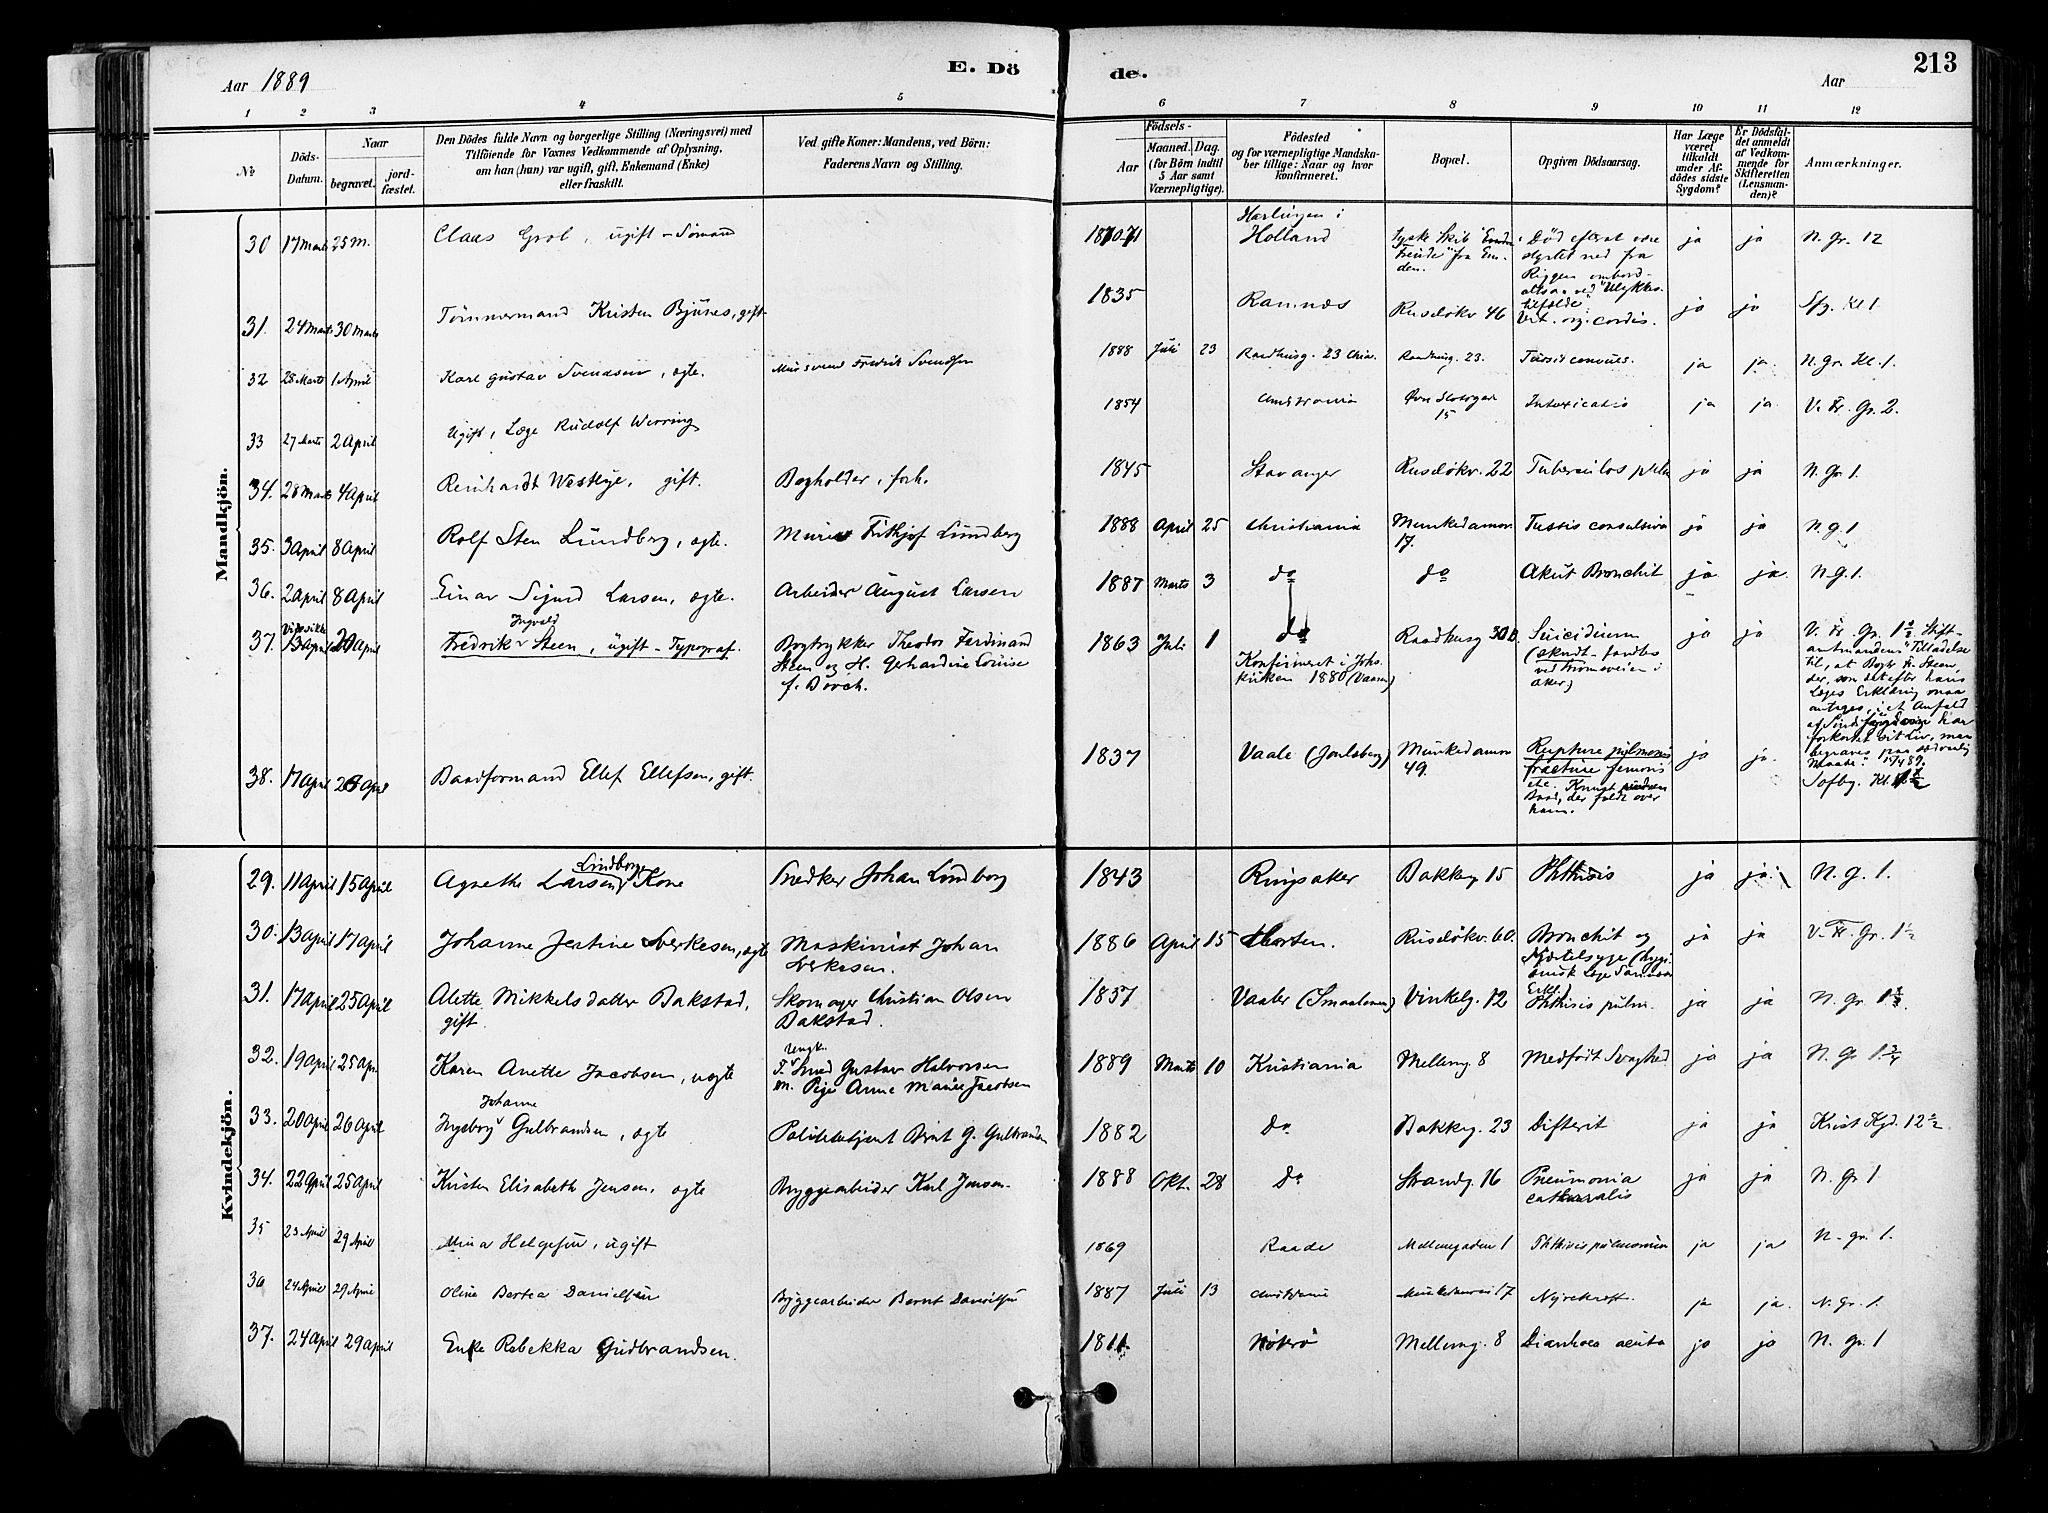 Aar 1889
E. Dö
de.
Aar
213
1 2 3 4 5 6 7 8 9 10 11 12
№
Döds-Datum.
Naar
begravet.
jord-fæstet.
Den Dödes fulde Navn og borgerlige Stilling (Næringsvei) med
Tilföiende for Voxnes Vedkommende af Oplysning,
om han (hun) var ugift, gift, Enkemand (Enke)
eller fraskilt.
Ved gifte Koner: Mandens, ved Börn:
Faderens Navn og Stilling.
Födsels-
Aar
Maaned. Dag.
(for Börn indtil
5 Aar samt
Værnepligtige).
Födested
og for værnepligtige Mandska-
ber tillige: Naar og hvor
konfirmeret.
Bopæl.
Opgiven Dödsaarsag.
Har Læge
været
tilkaldt
under Af-
dödes sidste
Sygdom?
Er Dödsfal-
det anmeldt
af Vedkom-
mende for
Skifteretten
(Lensman-
den)?
Anmærkninger.
Mandkjön.
30 17 Marts 25 M. Claas Grob, ugift - Sömand 1870-71 Harlingen i
Holland Tyske Skib
Freude" fra Em-
den. Död efterat være
styrtet ned fra
Riggen ombord-
altsaa ved "Ulykkes-
tilfælde" ja ja N. Gr. 12
31. 24 Marts 30 Marts Tömmermand Kristen Bjünes, gift 1835 Ramnæs Ruselökv 46 Vit. org. cordis. ja ja Sfg. Kl 1
32 28 Marts 1 April Karl Gustav Svendsen, ægte. Murersvend Fredrik Svendsen 1888 Juli 23 Raadhusg. 23 Chra. Raadhusg. 23. Tussis convuls. ja ja. N. Gr. Kl. 1.
33 27 Marts 2 April Ugift, Læge Rudolf Werring 1854 Christiania Övre Slotsgad
15 Intoxicatio ja ja. V. Fr. Gr. 2.
34. 28 Marts 4 April Reinhardt Westlye, gift. Bogholder, forh. 1845 Stavanger Ruselökv. 22 Tuberculos pulm ja ja N. Gr. 1.
35. 3 April 8 April Rolf Sten Lundberg, ægte. Murer Frithjof Lundberg 1888 April 25 Christiania Munkedamsv.
17. Tussis consultiva ja ja N. g. 1
36. 2 April 8 April Einar Sigurd Larsen, ægte. Arbeider August Larsen 1887 Marts 3 do do Akut Bronchit ja ja. N. g. 1.
37. 13 April 20 April Ingvald
Fredrik Steen, ugift - Typograf. Bogtrykker Theodor Ferdinand
Steen og H. Gerhardine Louise
f. Borch. 1863 Juli 1 do
Konfirmeret i Johs.
kirken 1880 (Vaaren) Raadhusg 30 b. Suicidium
(skudt - fandtes
ved Drammensveien i
Aker) ja ja V. Fr. Gr. 1½ Stift-
amtmandens Tilladelse
til, at Bogtr. Fr. Steen,
der, som det efter hans
Læges Erklæring maa
antages, i et Anfald
af Sindssygdom har
forkortet sit Liv, maa
begraves paa sædvanlig
Maade." 17/4 89.
38. 17 April 26 April Baadformand Ellef Ellefsen, gift. 1837 Vaale (Jarlsberg) Munkedamsv
49. Rupture pulmonis
fracture femoris
etc. Knust
Baad, der faldt over
ham. ja ja. Sofbg. Kl. 1½
Kvindekjön.
29. 11 April 15 April Agnethe Larsen Lindborg Kone Snedker Johan Lindborg 1843 Ringsaker Bakkeg 15 Phthisis ja ja. N. g. 1.
30. 13 April 17 April Johanne Jestine Sverkesen, ægte Maskinist Johan
Sverkesen. 1886 April 15 Horten. Ruselökv. 60. Bronchit og
Kjertelsyge
ja ja V. Fr. Gr. 1½
31. 17 April 25 April Alette Mikkelsdatter Bakstad,
gift. Skomager Christian Olsen
Bakstad. 1837 Vaaler (Smaalenene) Vinkelg. 12 Phthisis pulm. ja ja N. Gr. 1½
32. 19 April 25 Apr. Karen Anette Jacobsen, uægte Ungk.
F. Smed Gustav Halvorsen
M. Pige Anne Marie Jacobsen 1889 Marts 10 Kristiania Mellemg 8 Medfödt Svaghed ja ja N. Gr 1.
33. 20 April 26 April Johanne
Ingeborg Gulbrandsen, ægte Politibetjent Bernt G. Gulbrandsen 1882 Do Bakkeg. 23 Difterit ja ja Krist Kgd. 12½
34. 22 April 25 April Kirsten Elisabeth Jensen, ægte Bryggearbeider Karl Jensen. 1888 Okt. 28 Do Strandg. 16 Pneumonia
catharralis ja ja N. Gr 1
35 23 April 29 April Mina Helgesen, ugift 1869 Raade Mellemgaden 1 Phthisis pulmonum ja ja N. gr. 1.
36 24 April 29 April Oline Bertea Danielsen Bryggearbeider Bernt Danielsen 1887 Juli 13 Christiania Munkedamsvei 17 Nyrekræft. ja ja. N. Gr. 1.
37. 24 April 29 April Enke Rebekka Gudbrandsen. 1811 Nöterö Mellemg. 8 Diarrhoea acuta ja ja N. gr. 1